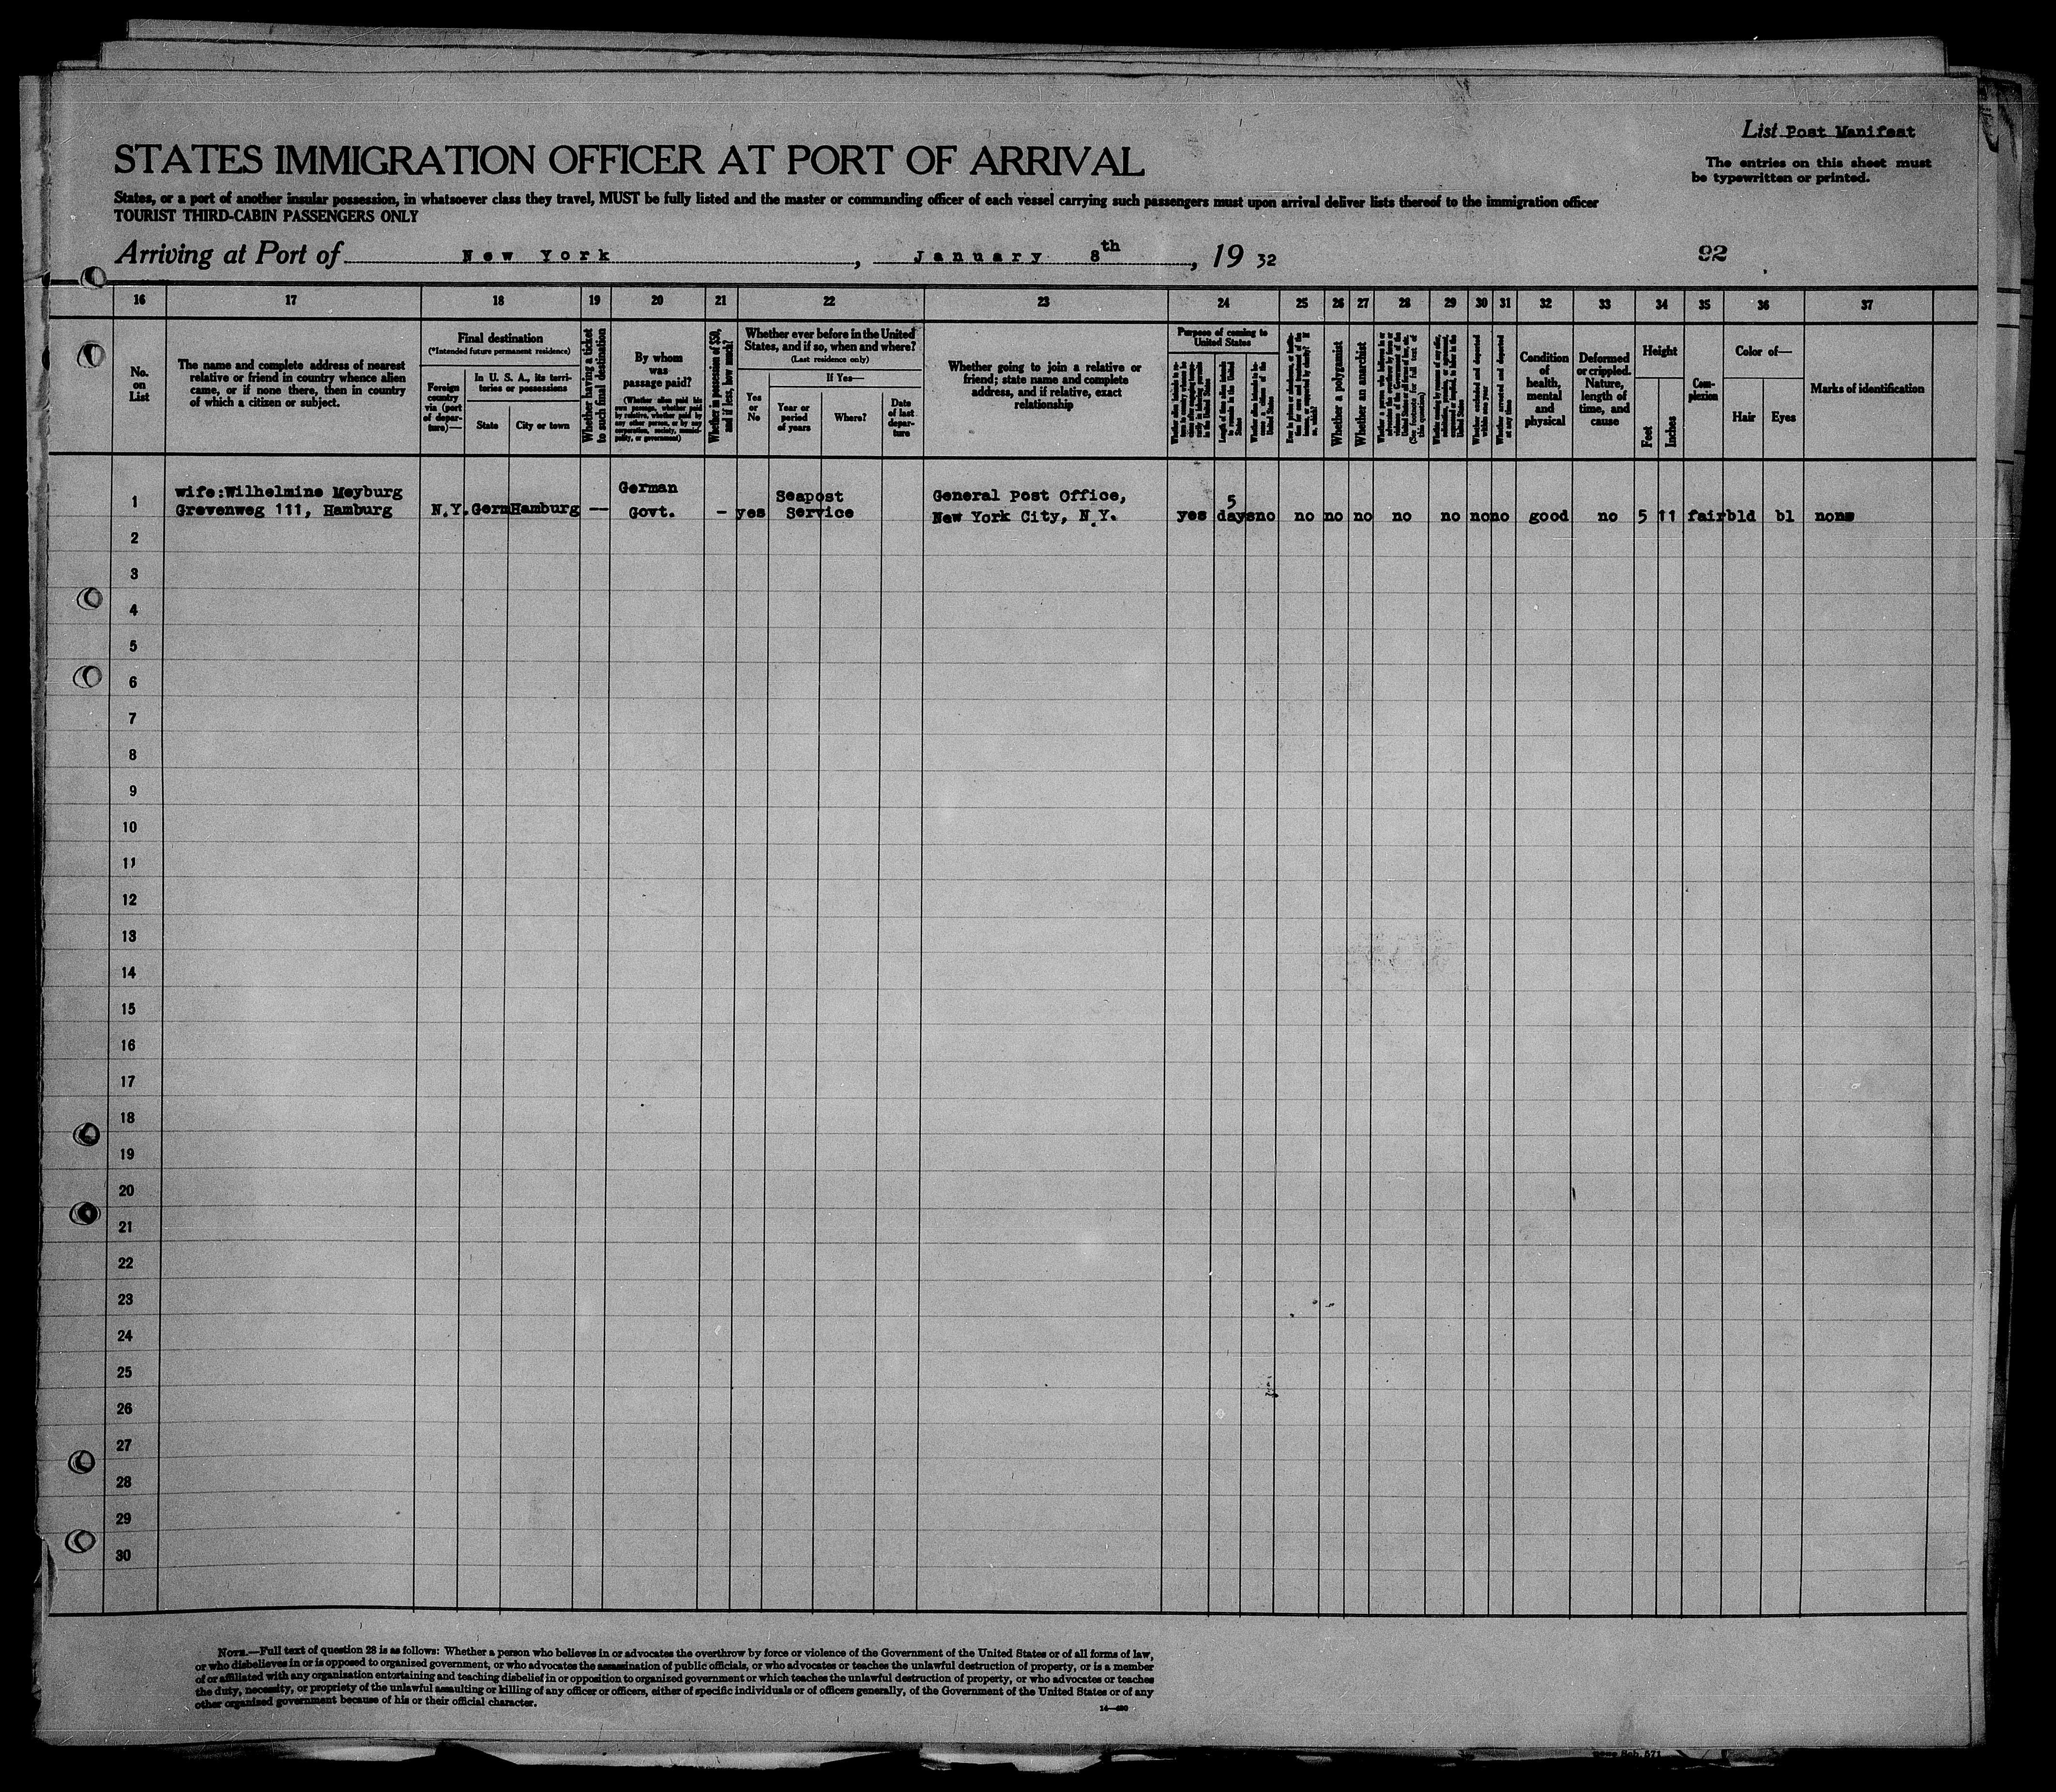 List Post Manifest
STATES IMMIGRATION OFFICER AT PORT OF ARRIVAL
The entries on this sheet must
be typewritten or printed.
States, or a port of another insular possession, in whatsoever class they travel, MUST be fully listed and the master or commanding officer of each vessel carrying such passengers must upon arrival deliver lists thereof to the immigration officer
TOURIST THIRD-CABIN PASSENGERS ONLY
Arriving at Port of New York, January 8th, 1932
92
16 17 18 19 20 21 22 23 24 25 26 27 28 29 30 31 32 33 34 35 36 37
No.
on
List
The name and complete address of nearest
relative or friend in country whence alien
came, or if none there, then in country
of which a citizen or subject.
Final destination
(*Intended future permanent residence)
Foreign
country
via (port
of depar-
ture)—
In U. S. A., its terri-
tories or possessions
State
City or town
Whether having a ticket
to such final destination
By whom
was
passage paid?
(Whether alien paid his
own passage, whether paid
by relative, whether paid by
any other person, or by any
corporation, society, munici-
pality, or government)
Whether in possession of $50,
and if less, how much?
Whether ever before in the United
States, and if so, when and where?
(Last residence only)
Yes
or
No
If Yes—
Year or
period
of years
Where?
Date
of last
depar-
ture
Whether going to join a relative or
friend; state name and complete
address, and if relative, exact
relationship
Purpose of coming to
United States
Whether a polygamist
Whether an anarchist
Condition
of
health,
mental
and
physical
Deformed
or crippled.
Nature,
length of
time, and
cause
Height
Feet
Inches
Com-
plexion
Color of—
Hair
Eyes
Marks of identification
1
wife:Wilhelmine Meyburg
Grevenweg 111, Hamburg
N.Y. Germ Hamburg
--
German
Govt.
- yes
Seapost
Service
General Post Office,
New York City, N.Y.
yes 5 days no no no no no no no no good no 5 11 fair bld bl none
2
3
4
5
6
7
8
9
10
11
12
13
14
15
16
17
18
19
20
21
22
23
24
25
26
27
28
29
30
NOTE.—Full text of question 28 is as follows: Whether a person who believes in or advocates the overthrow by force or violence of the Government of the United States or of all forms of law,
or who disbelieves in or is opposed to organized government, or who advocates the assassination of public officials, or who advocates or teaches the unlawful destruction of property, or is a member
of or affiliated with any organization entertaining and teaching disbelief in or opposition to organized government or which teaches the unlawful destruction of property, or who advocates or teaches
the duty, necessity, or propriety of the unlawful assaulting or killing of any officer or officers, either of specific individuals or of officers generally, of the Government of the United States or of any
other organized government because of his or their official character.